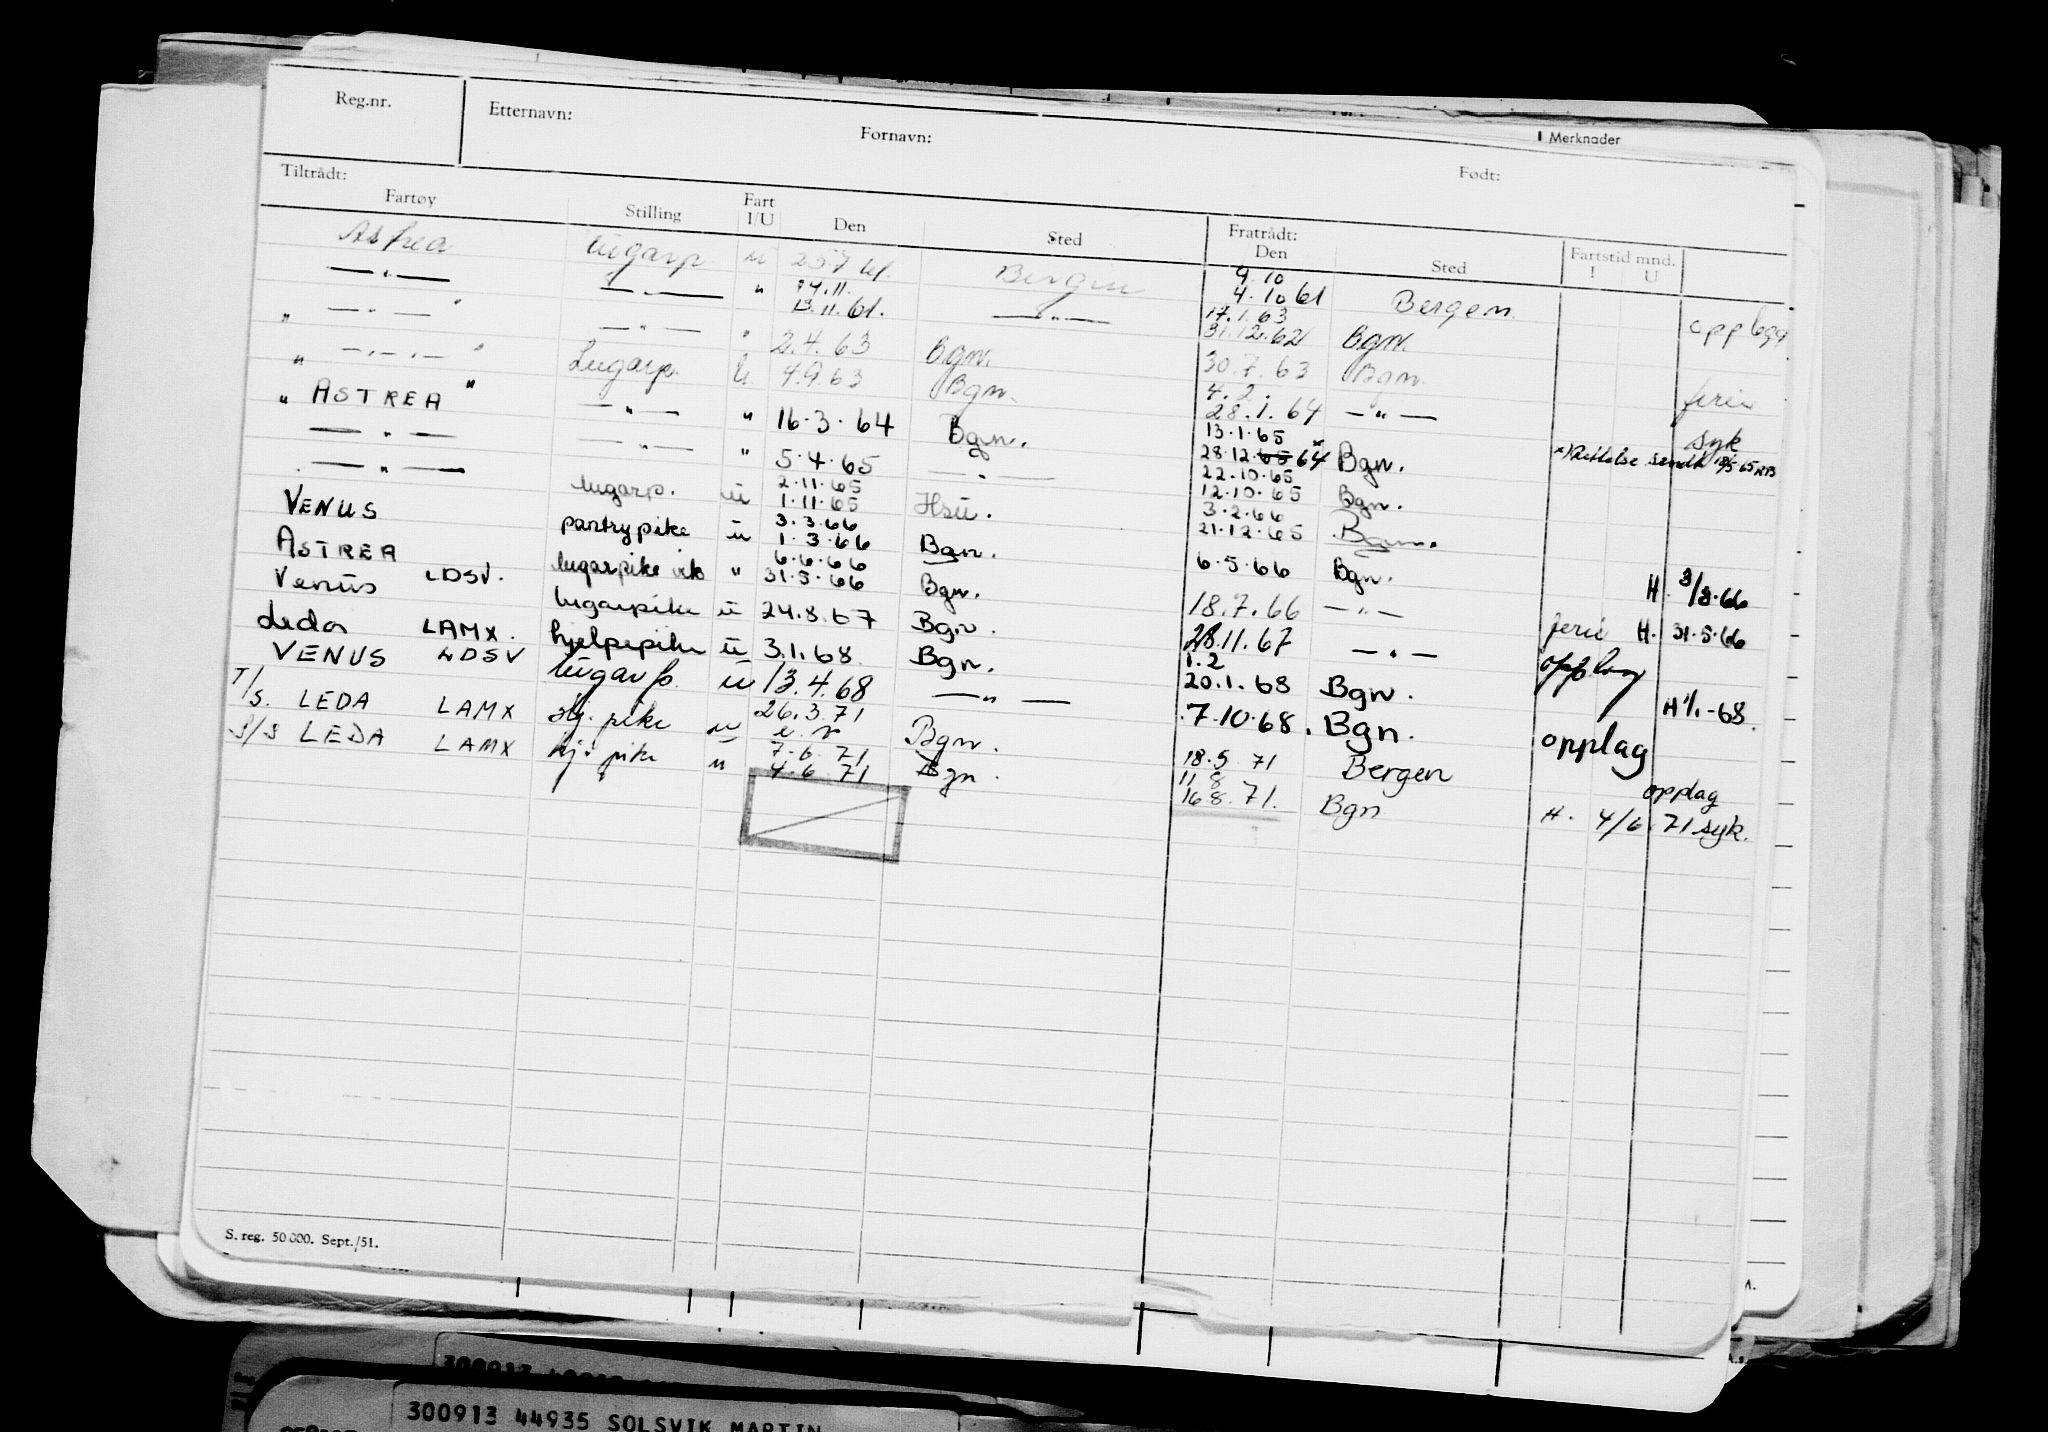 Reg.nr. Etternavn: Fornavn: Født: Merknader
Tiltrådt: Fratrådt:
Fartøy Stilling Fart I/U Den Sted Den Sted Fartstid mnd. I U
Astrea lugarp. u 25.7 61. Bergen 9.10 4.10 61 Bergen. opplegg
— " — — " — " 14.11. 13.11.61. — " — 17.1.63 31.12.62 Bgn.
" — " — " — " — " 2.4.63 Bgn. 30.7.63 Bgn. ferie
" — " — " Lugarp. U. 4.9.63 Bgn. 4.2. 28.1.64 — " — syk
" ASTREA " — " — " 16.3.64 Bgn. 13.1.65 28.12.65 64 x Bgn. x) Rettelse sendt
— " — — " — " 5.4.65 — " — 22.10.65 12.10.65 Bgn.
— " — lugarp. u 2.11.65 1.11.65 Hsu. 3.2.66 21.12.65 Bgn.
VENUS pantrypike u 3.3.66 1.3.66 Bgn. 6.5.66 Bgn. H. 3/3.66
ASTREA lugarpike vik " 6.6.66 31.5.66 Bgn. 18.7.66 — " — ferie H. 31.5.66
Venus LDSV. lugarpike u 24.8.67 Bgn. 28.11.67 — " — opplag
Leda LAMX. hjelpepike u 3.1.68. Bgn. 1.2 20.1.68 Bgn. H 1/1-68
VENUS LDSV lugarp. u 13.4.68 — " — 7.10.68. Bgn. opplag
T/S. LEDA LAMX hj. pike u 26.3.71 Bgn. 18.5.71 Bergen opplag
S/S LEDA LAMX hj. pike u 7.6.71 4.6.71 Bgn. 11.8 16.8.71. Bgn H. 4/6.71 syk.
S. reg. 50 000. Sept./51.
300913
300913 44935 SOLSVIK MARTIN